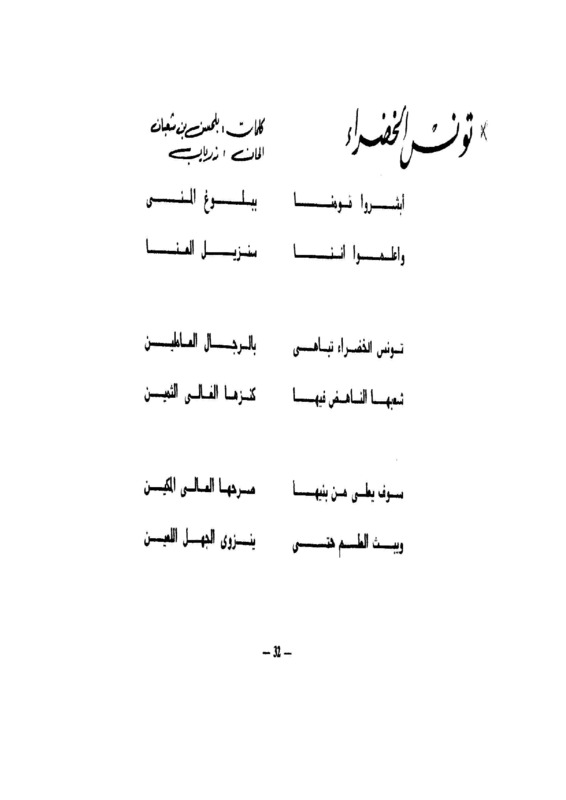 تونس الخضراء
كلمات : بلحسن بن شعبان
الحان : زرياب
أبشروا قومنا ببلوغ المنى
واعلموا اننا سنزيل العنا
تونس الخضراء تباهى بالرجال العاملين
شعبها الناهض فيها كنزها الغالى الثمين
سوف يعلى من بنيها صرحها العالى المكين
ويبث العلم حتى ينزوى الجهل اللعين
- 32 -